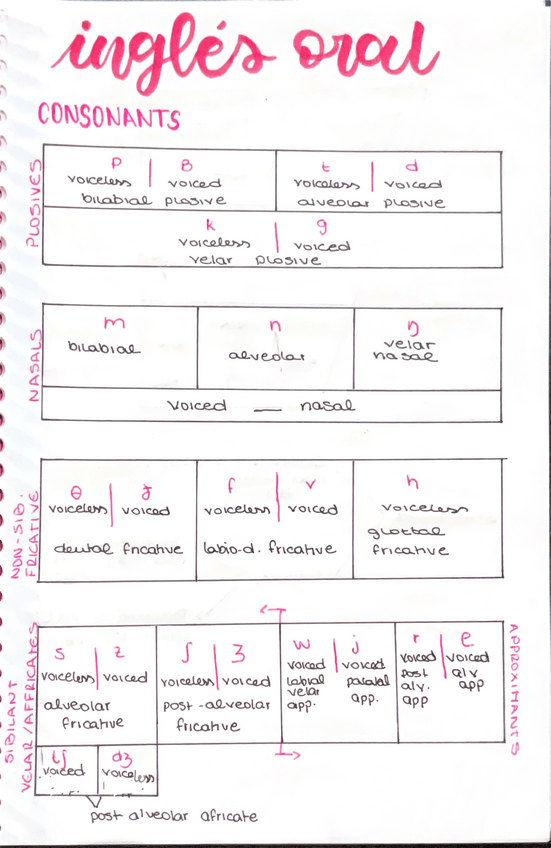 inglés oral
CONSONANTS
PLOSIVES
p | B
voiceless | voiced
bilabial plosive
t | d
voiceless | voiced
alveolar plosive
k | g
voiceless | voiced
velar plosive
NASALS
m
bilabial
n
alveolar
ŋ
velar
nasal
voiced __ nasal
NON-SIB.
FRICATIVE
θ | ð
voiceless | voiced
dental fricative
f | v
voiceless | voiced
labio-d. fricative
h
voiceless
glottal
fricative
SIBILANT
VELAR/AFFRICATES
s | z
voiceless | voiced
alveolar
fricative
ʃ | ʒ
voiceless | voiced
post-alveolar
fricative
w
voiced
labial
velar
app.
j
voiced
palatal
app.
r
voiced
post
alv.
app
voiced
alv
app
APPROXIMANTS
tʃ
voiced
dʒ
voiceless
post alveolar africate